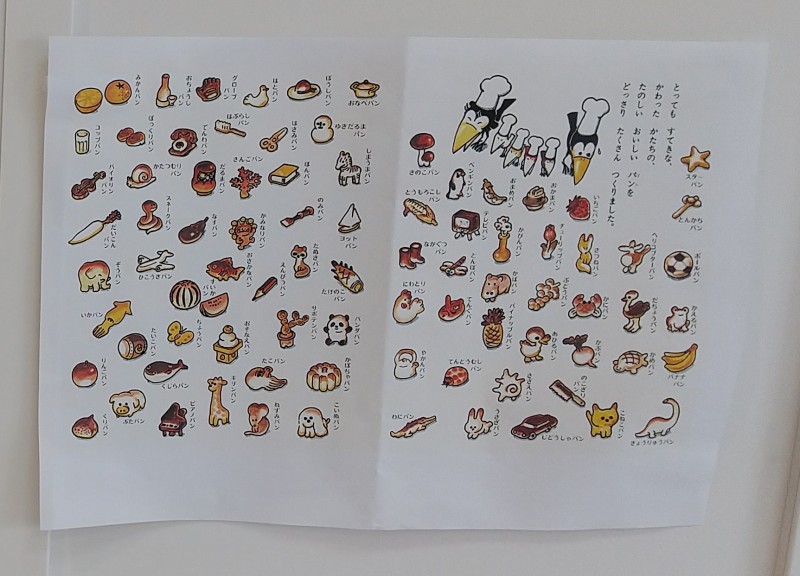 みかんパン
おちょうしパン
グローブパン
はとパン
ぼうしパン
おなべパン
コップパン
ぽっくりパン
でんわパン
はぶらしパン
はさみパン
ゆきだるまパン
バイオリンパン
かたつむりパン
だるまパン
さんごパン
ほんパン
しまうまパン
だいこんパン
スネークパン
なすパン
かみなりパン
のみパン
ヨットパン
ぞうパン
ひこうきパン
すいかパン
おさかなパン
えんぴつパン
たぬきパン
たけのこパン
いかパン
たいこパン
ちょうパン
おそなえパン
サボテンパン
パンダパン
りんごパン
くじらパン
キリンパン
たこパン
かぼちゃパン
くりパン
ぶたパン
ピアノパン
ねずみパン
こいぬパン
とっても　すてきな、
かわった　かたちの、
たのしい　おいしい　パンを
どっさり　たくさん　つくりました。
きのこパン
ペンギンパン
おまめパン
おかまパン
いちごパン
スターパン
とうもろこしパン
テレビパン
かびんパン
チューリップパン
きつねパン
ヘリコプターパン
とんかちパン
ボールパン
ながぐつパン
とんぼパン
かばパン
ぶどうパン
かにパン
だちょうパン
かえるパン
にわとりパン
てんぐパン
パイナップルパン
あひるパン
かぶパン
かめパン
バナナパン
やかんパン
てんとうむしパン
さざえパン
のこぎりパン
わにパン
うさぎパン
じどうしゃパン
こねこパン
きょうりゅうパン